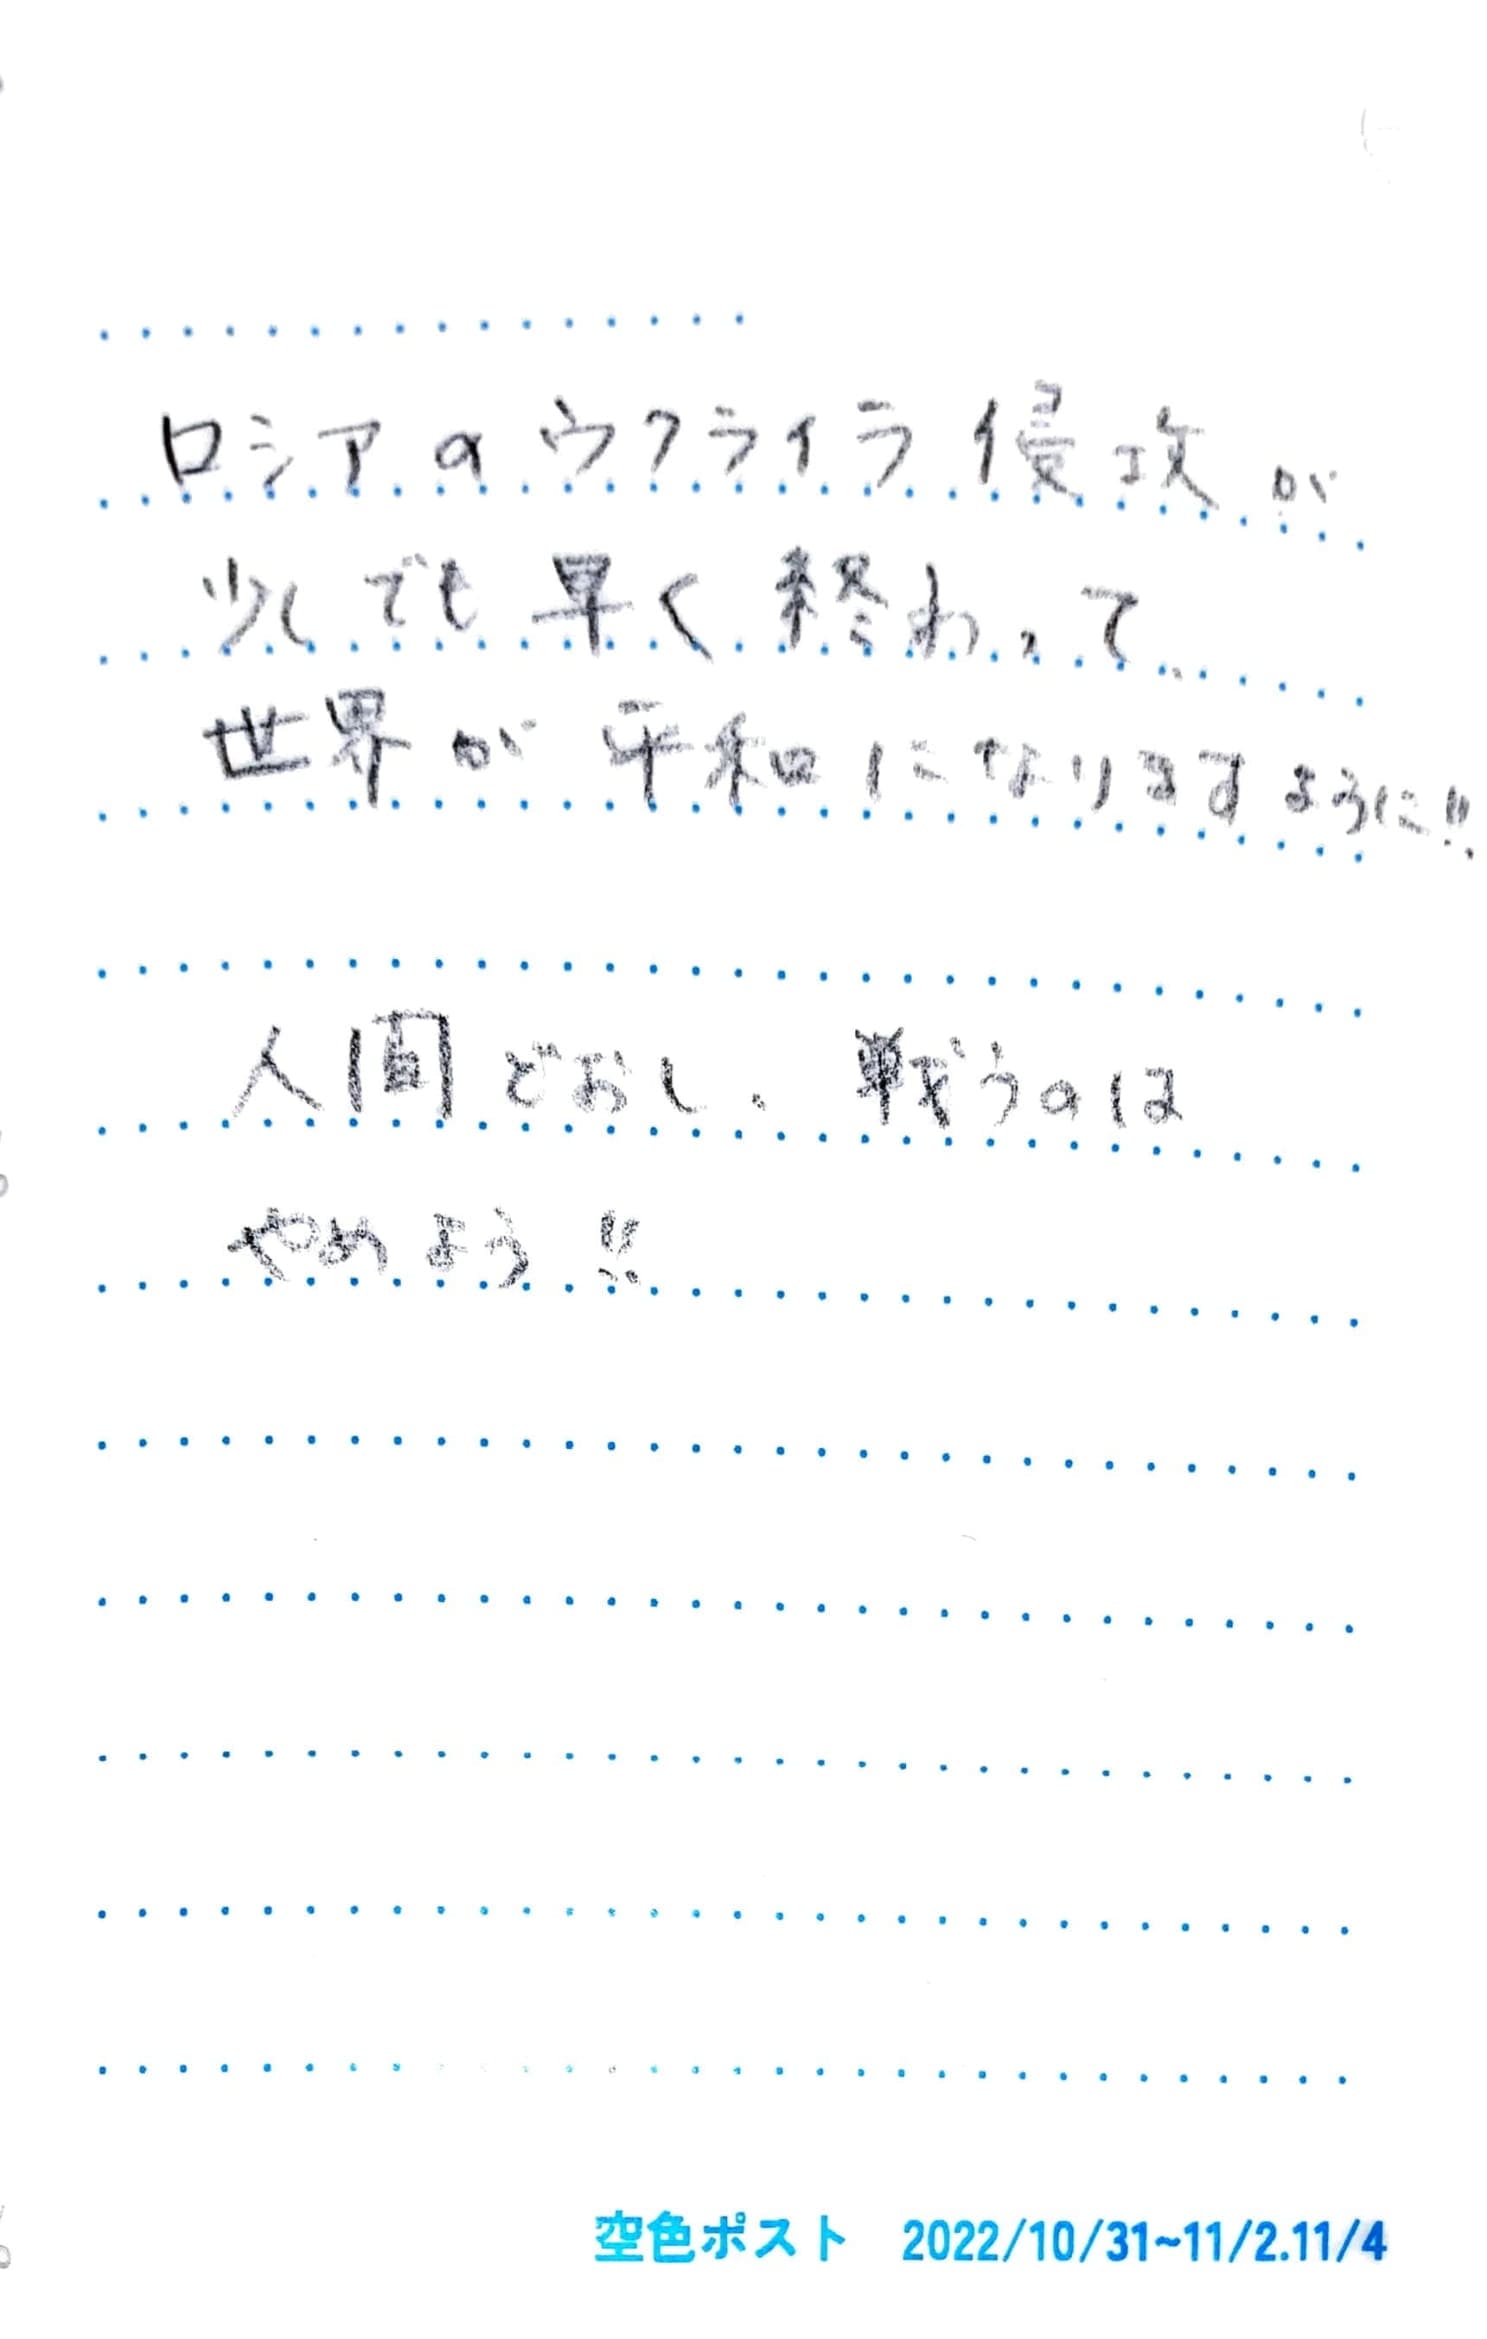 ロシアのウクライラ侵攻が
少しでも早く終わって
世界が平和になりますように!!
人間どおし、戦うのは
やめよう!!
空色ポスト 2022/10/31~11/2.11/4